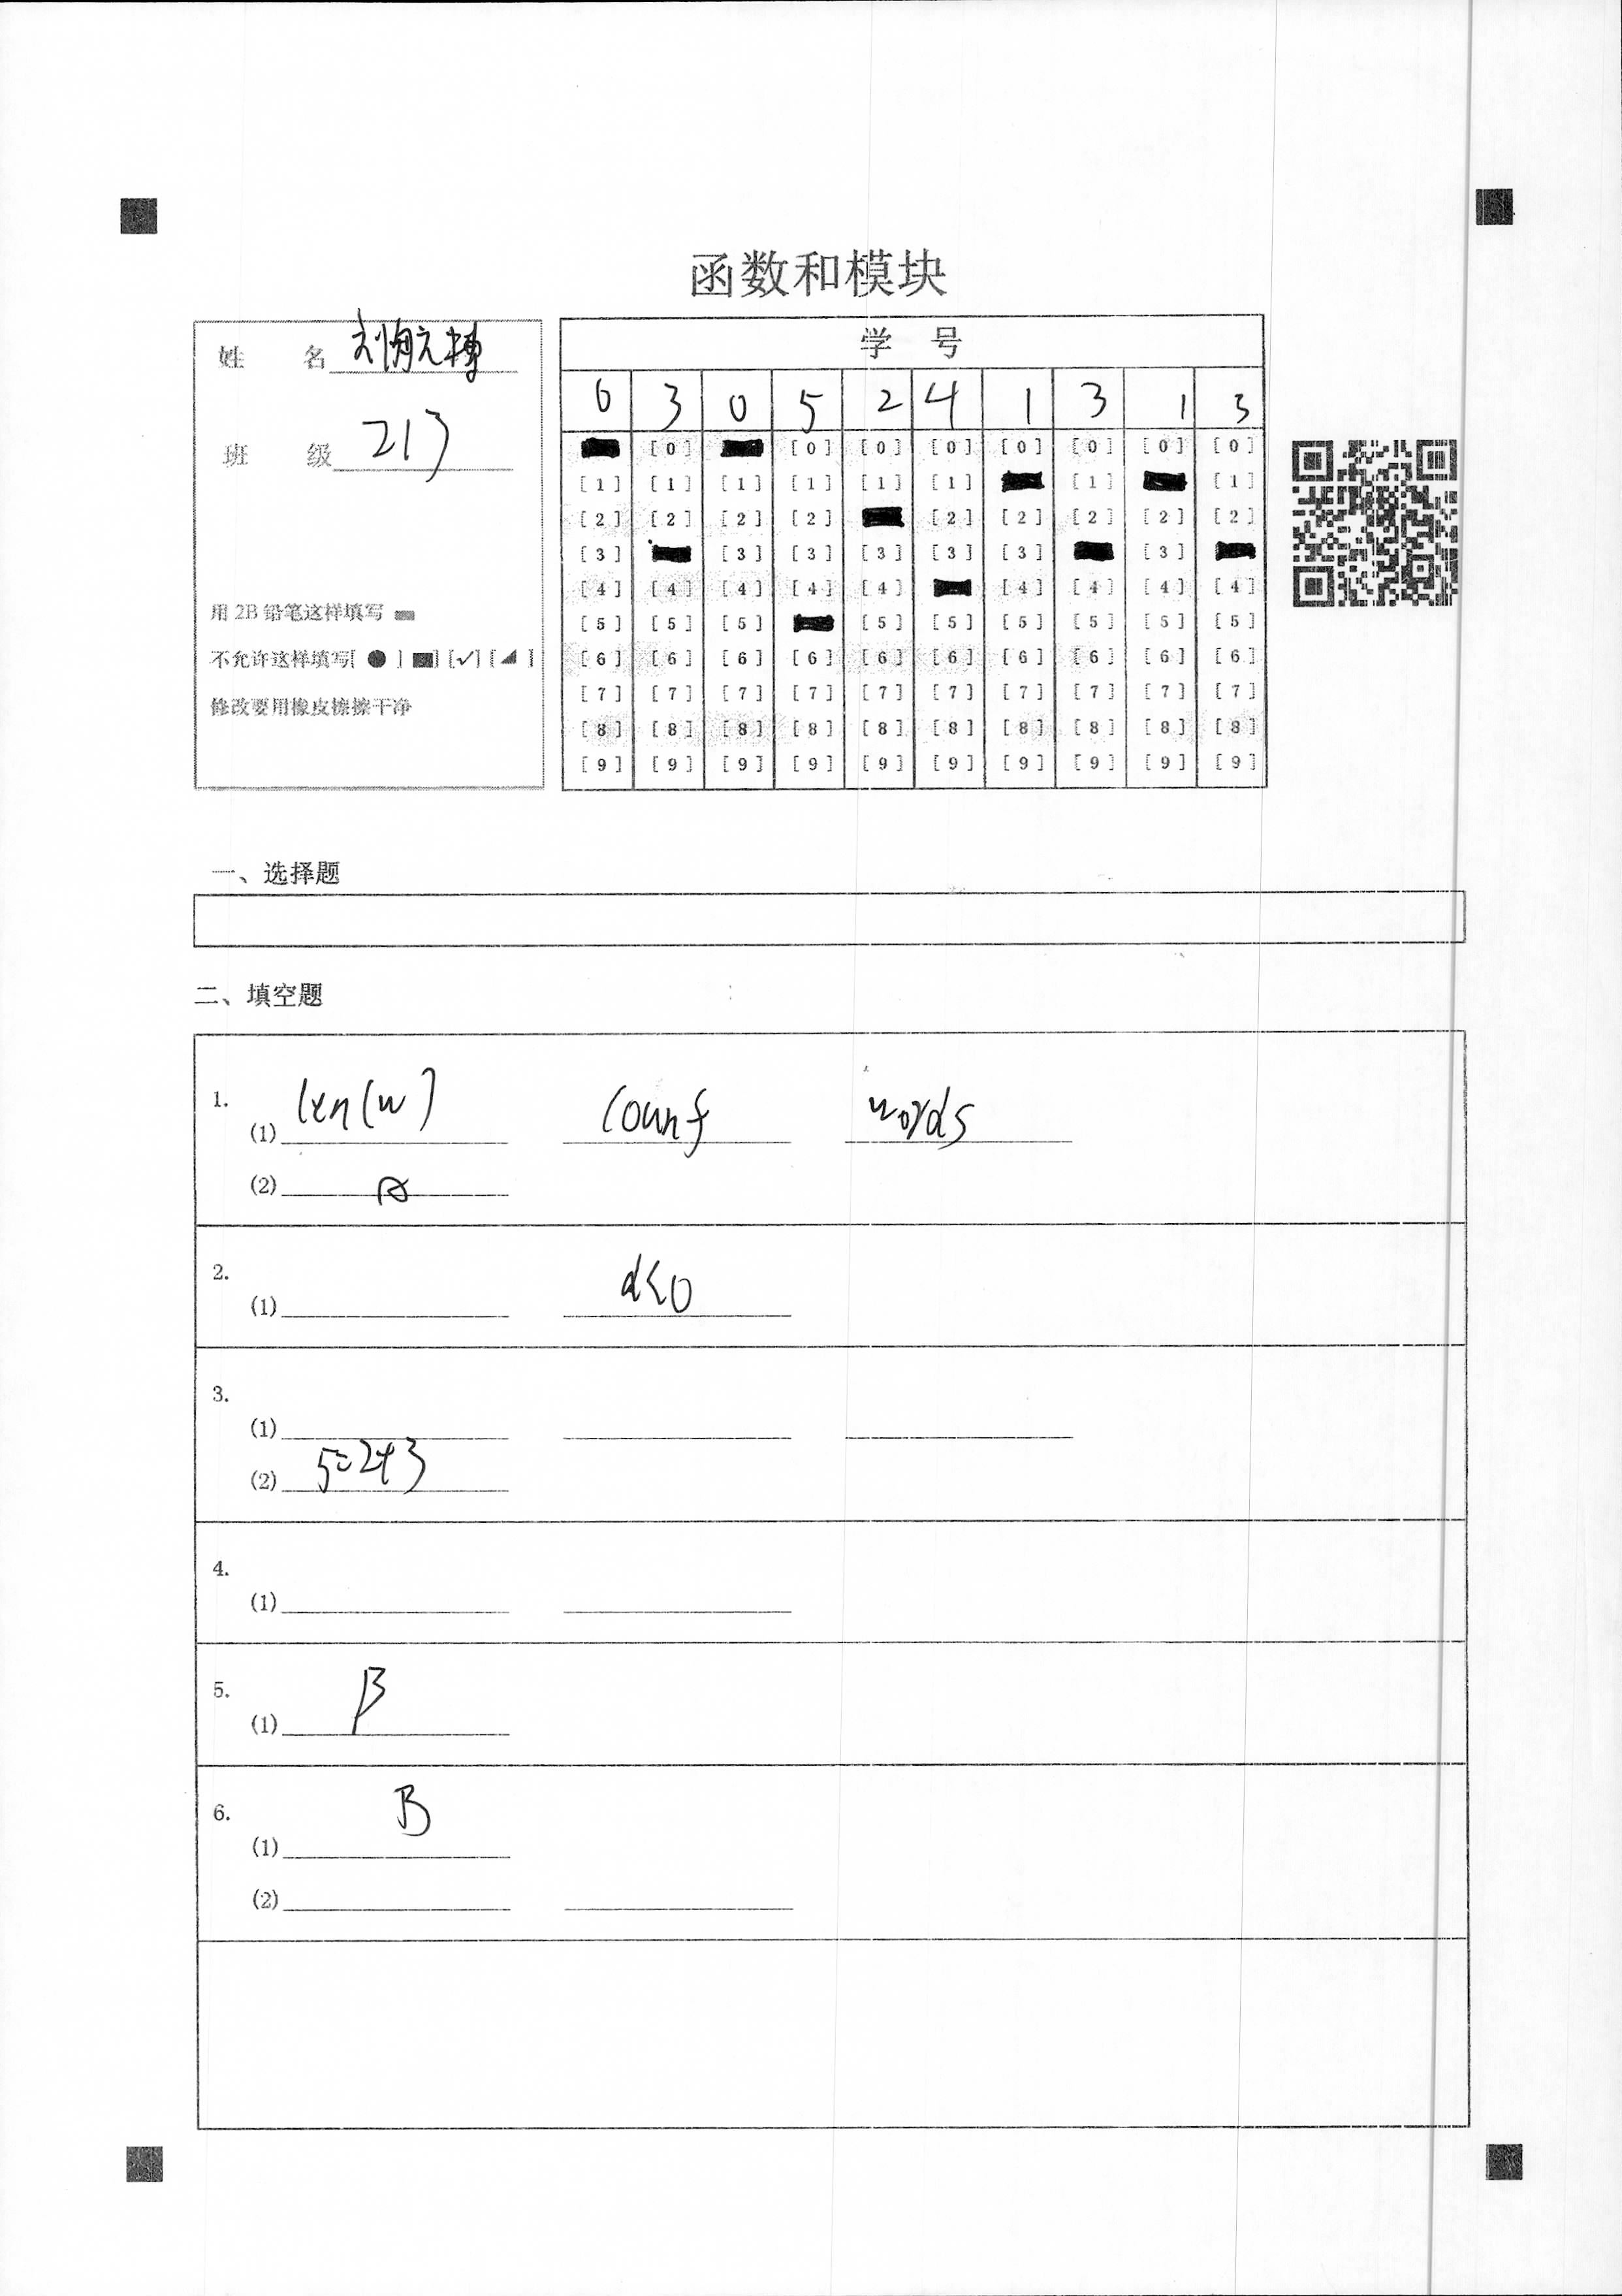 函数和模块
姓 名
班 级 213
用 2B 铅笔这样填写
不允许这样填写[ ● ] [■] [✓] [◢ ]
修改要用橡皮擦擦干净
学 号
0 3 0 5 2 4 1 3 1 3
[0] [0] [0] [0] [0] [0] [0] [0]
[1] [1] [1] [1] [1] [1] [1] [1]
[2] [2] [2] [2] [2] [2] [2] [2] [2]
[3] [3] [3] [3] [3] [3] [3]
[4] [4] [4] [4] [4] [4] [4] [4] [4]
[5] [5] [5] [5] [5] [5] [5] [5] [5]
[6] [6] [6] [6] [6] [6] [6] [6] [6] [6]
[7] [7] [7] [7] [7] [7] [7] [7] [7] [7]
[8] [8] [8] [8] [8] [8] [8] [8] [8] [8]
[9] [9] [9] [9] [9] [9] [9] [9] [9] [9]
一、选择题
二、填空题
1.
(1) len(w) count words
(2) A
2.
(1) d<0
3.
(1)
(2) 5=2+3
4.
(1)
5.
(1) B
6.
(1) B
(2)